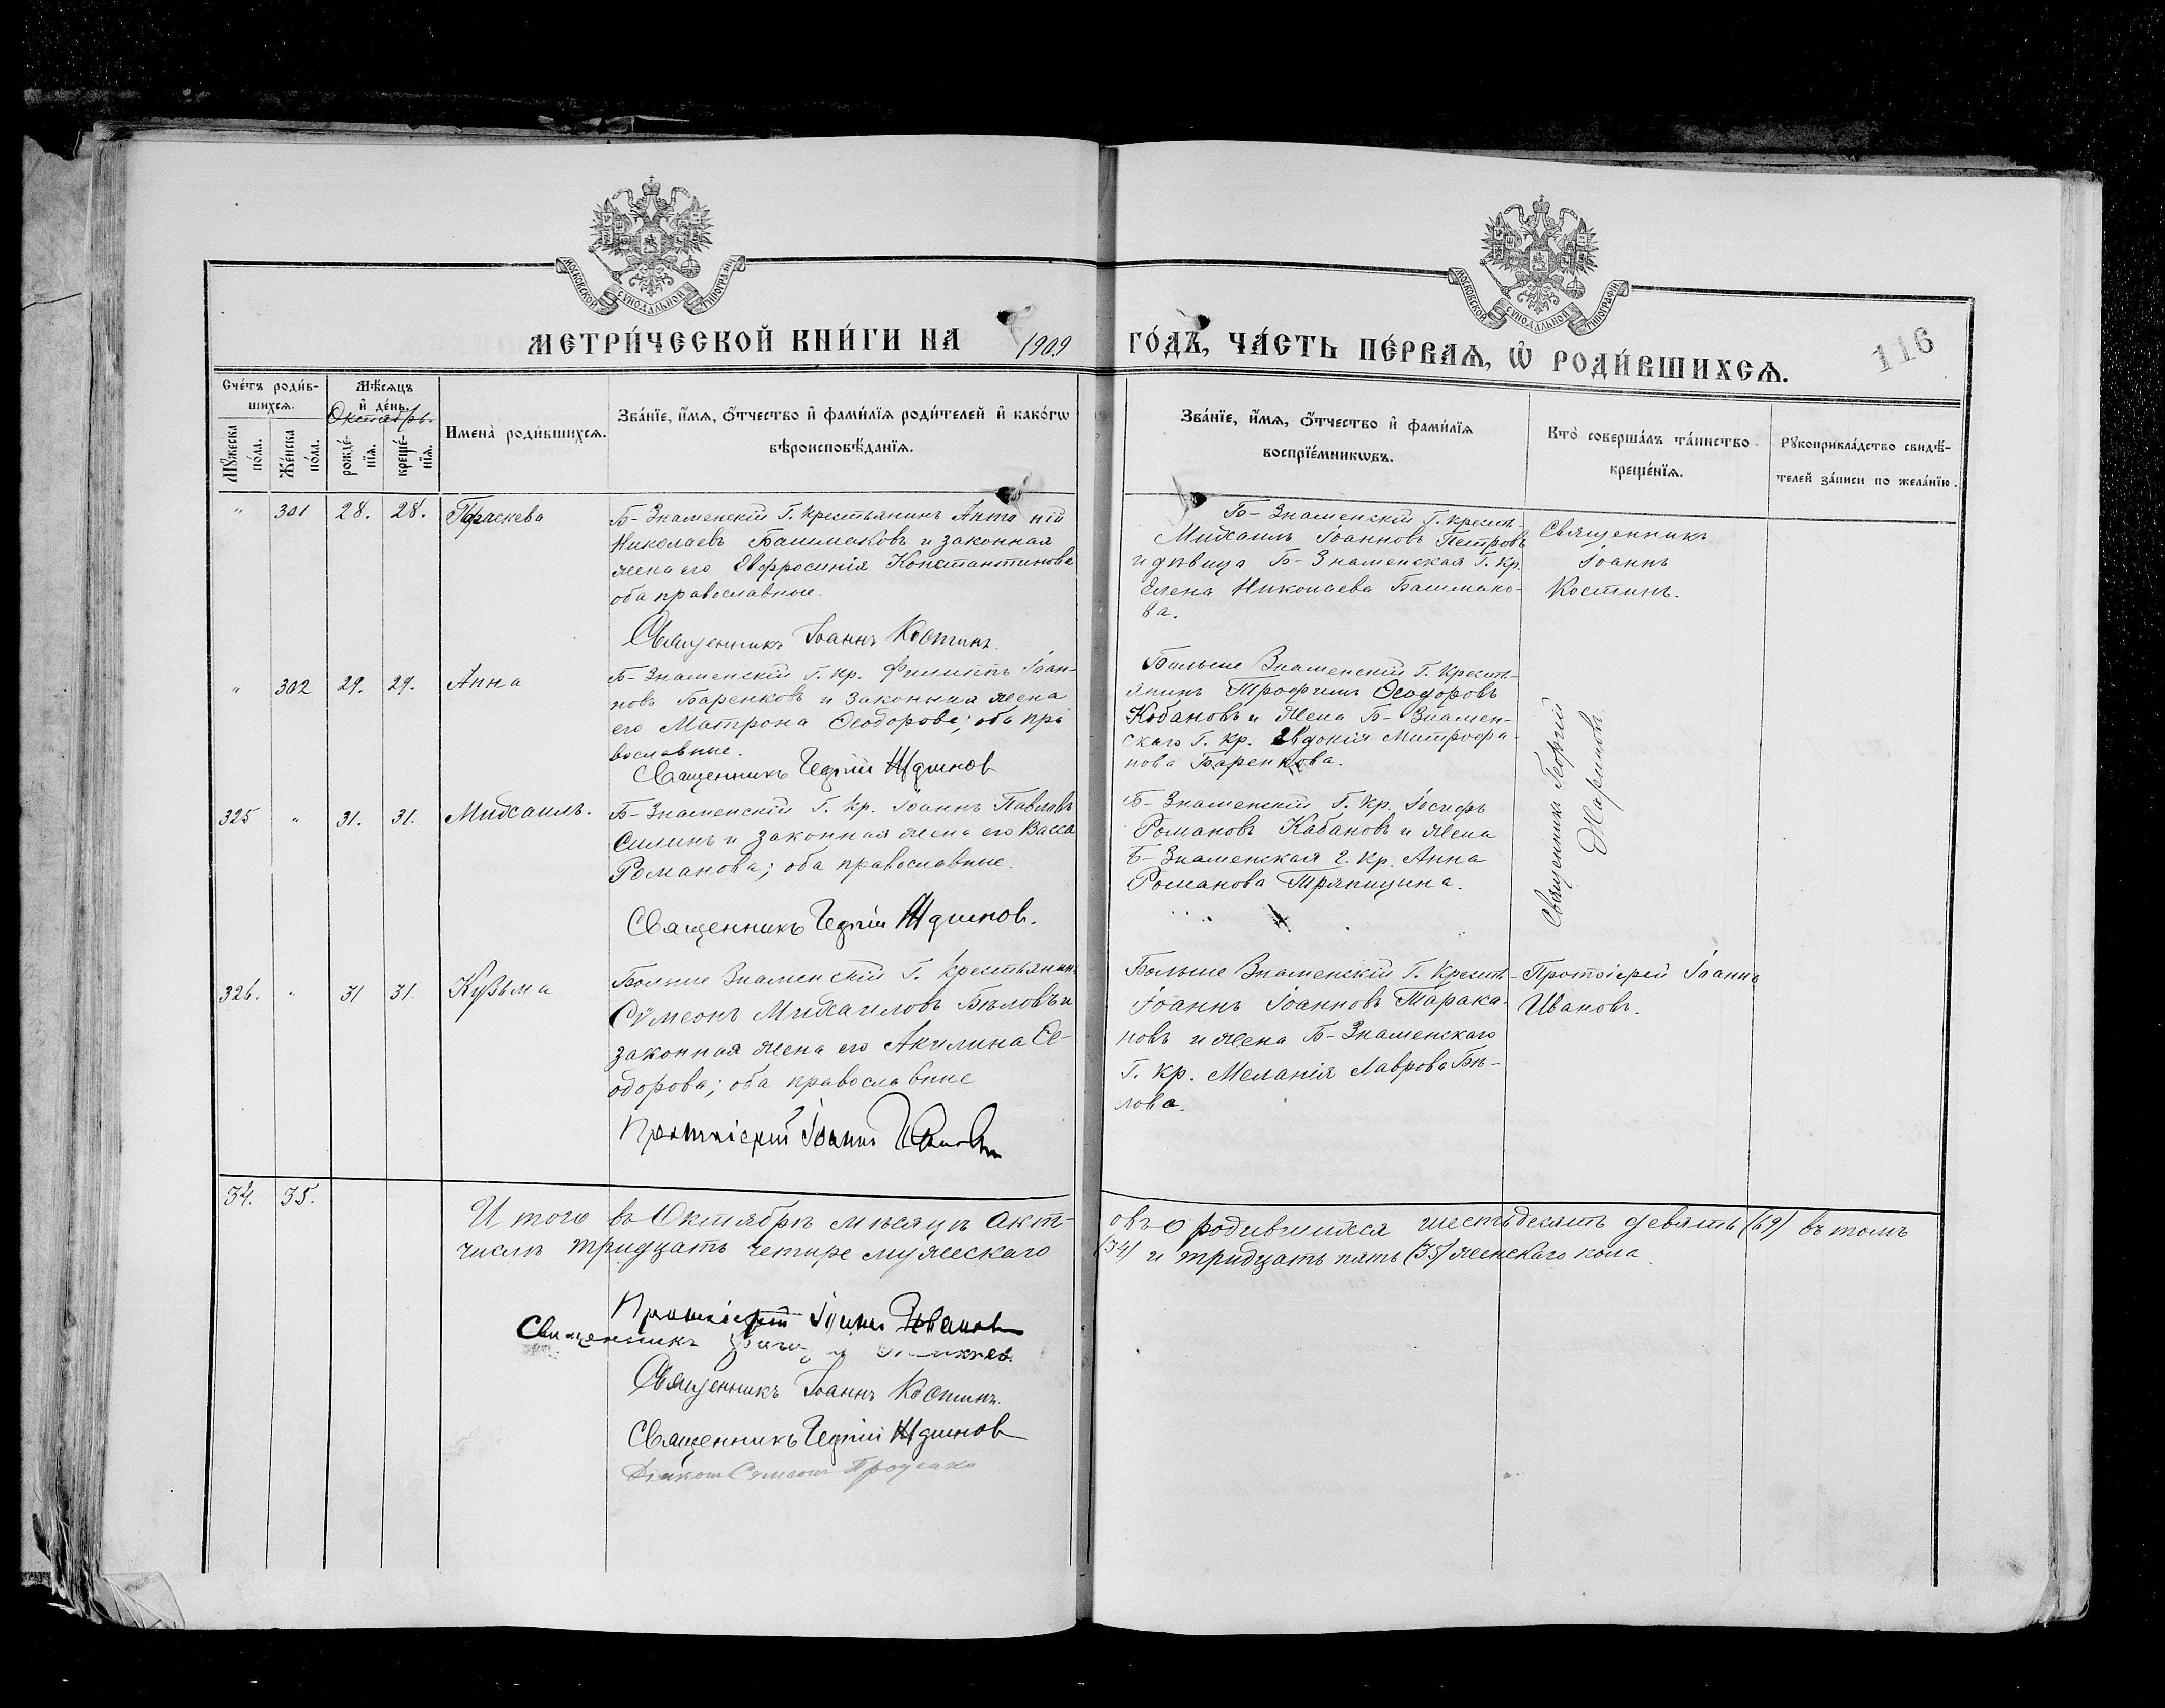 МОСКОВСКОЙ СѴНОДАЛЬНОЙ ТИПОГРАФІИ
МОСКОВСКОЙ СѴНОДАЛЬНОЙ ТИПОГРАФІИ
МЕТРИ́ЧЕСКОЙ КНИ́ГИ НА 1909 ГО́ДЪ, ЧА́СТЬ ПЕ́РВАЯ, Ѡ РОДИ́ВШИХСЯ.
116
Сче́тъ роди́в-
шихся.
Мѣ́сяцъ
и҆ де́нь.
Октябрь.
Мꙋ́жеска
по́ла.
Же́нска
по́ла.
рожде́-
нїя.
креще́-
нїя.
Имена̀ роди́вшихся.
Зва́нїе, и҆́мя, ѻ҆́тчество и҆ фами́лїя роди́телей и҆ како́гѡ
вѣроисповѣ́данїя.
Зва́нїе, и҆́мя, ѻ҆́тчество и҆ фами́лїя
воспрїе́мникѡвъ.
Кто̀ соверша́лъ та́инство
креще́нїя.
Рꙋкоприкла́дство свидѣ́-
телей за́писи по жела́нїю.
" 301 28. 28. Параскева
Б-Знаменскій Г. Крестьянинъ Антоній
Николаевъ Башмаковъ и законная
жена его Евфросинія Константинова
оба православные.
Священникъ Іоаннъ Костинъ.
Б-Знаменскій Г. Крестъ-
Михаилъ Іоанновъ Петровъ
и дѣвица Б-Знаменская Г. Кр.
Елена Николаева Башмако-
ва.
Священникъ
Іоаннъ
Костинъ.
" 302 29. 29. Анна
Б-Знаменскій Г. Кр. Филиппъ Іоан-
новъ Баренковъ и Законная жена
его Матрона Ѳеодорова; оба пра
вославные.
Священникъ Георгій
Больше Знаменскій Г. Кресть-
янинъ Трофимъ Ѳеодоровъ
Кабановъ и жена Б-Знамен-
скаго Г. Кр. Евдокія Митрофа-
нова Баренкова.
Священникъ Георгій
325 " 31. 31. Михаилъ.
Б-Знаменскій Г. Кр. Іоаннъ Павловъ
Силинъ и законная жена его Васса
Романова; оба православные.
Священникъ Георгій
Б-Знаменскій Г. Кр. Іосифъ
Романовъ Кабановъ и жена
Б-Знаменская Г. Кр. Анна
Романова Тряпицына.
326. " 31 31. Кузьма
Больше Знаменскій Г. Крестьянинъ
Сѵмеонъ Михаиловъ Бѣловъ и
законная жена его Акилина Ѳе-
одорова; оба православные
Протоіерей Іоаннъ Ивановъ
Больше Знаменскій Г. Кресть-
Іоаннъ Іоанновъ Тарака-
новъ и жена Б-Знаменскаго
Г. Кр. Меланія Лаврова Бѣ-
лова.
Протоіерей Іоаннъ
Ивановъ.
34. 35.
Итого въ Октябрѣ мѣсяцѣ акт-овъ о родившихся шестьдесятъ девять (69) въ томъ
числѣ тридцать четыре мужескаго (34) и тридцать пять (35) женскаго пола.
Протоіерей Іоаннъ Ивановъ
Священникъ
Священникъ Іоаннъ Костинъ.
Священникъ Георгій
Діаконъ Сѵмеонъ